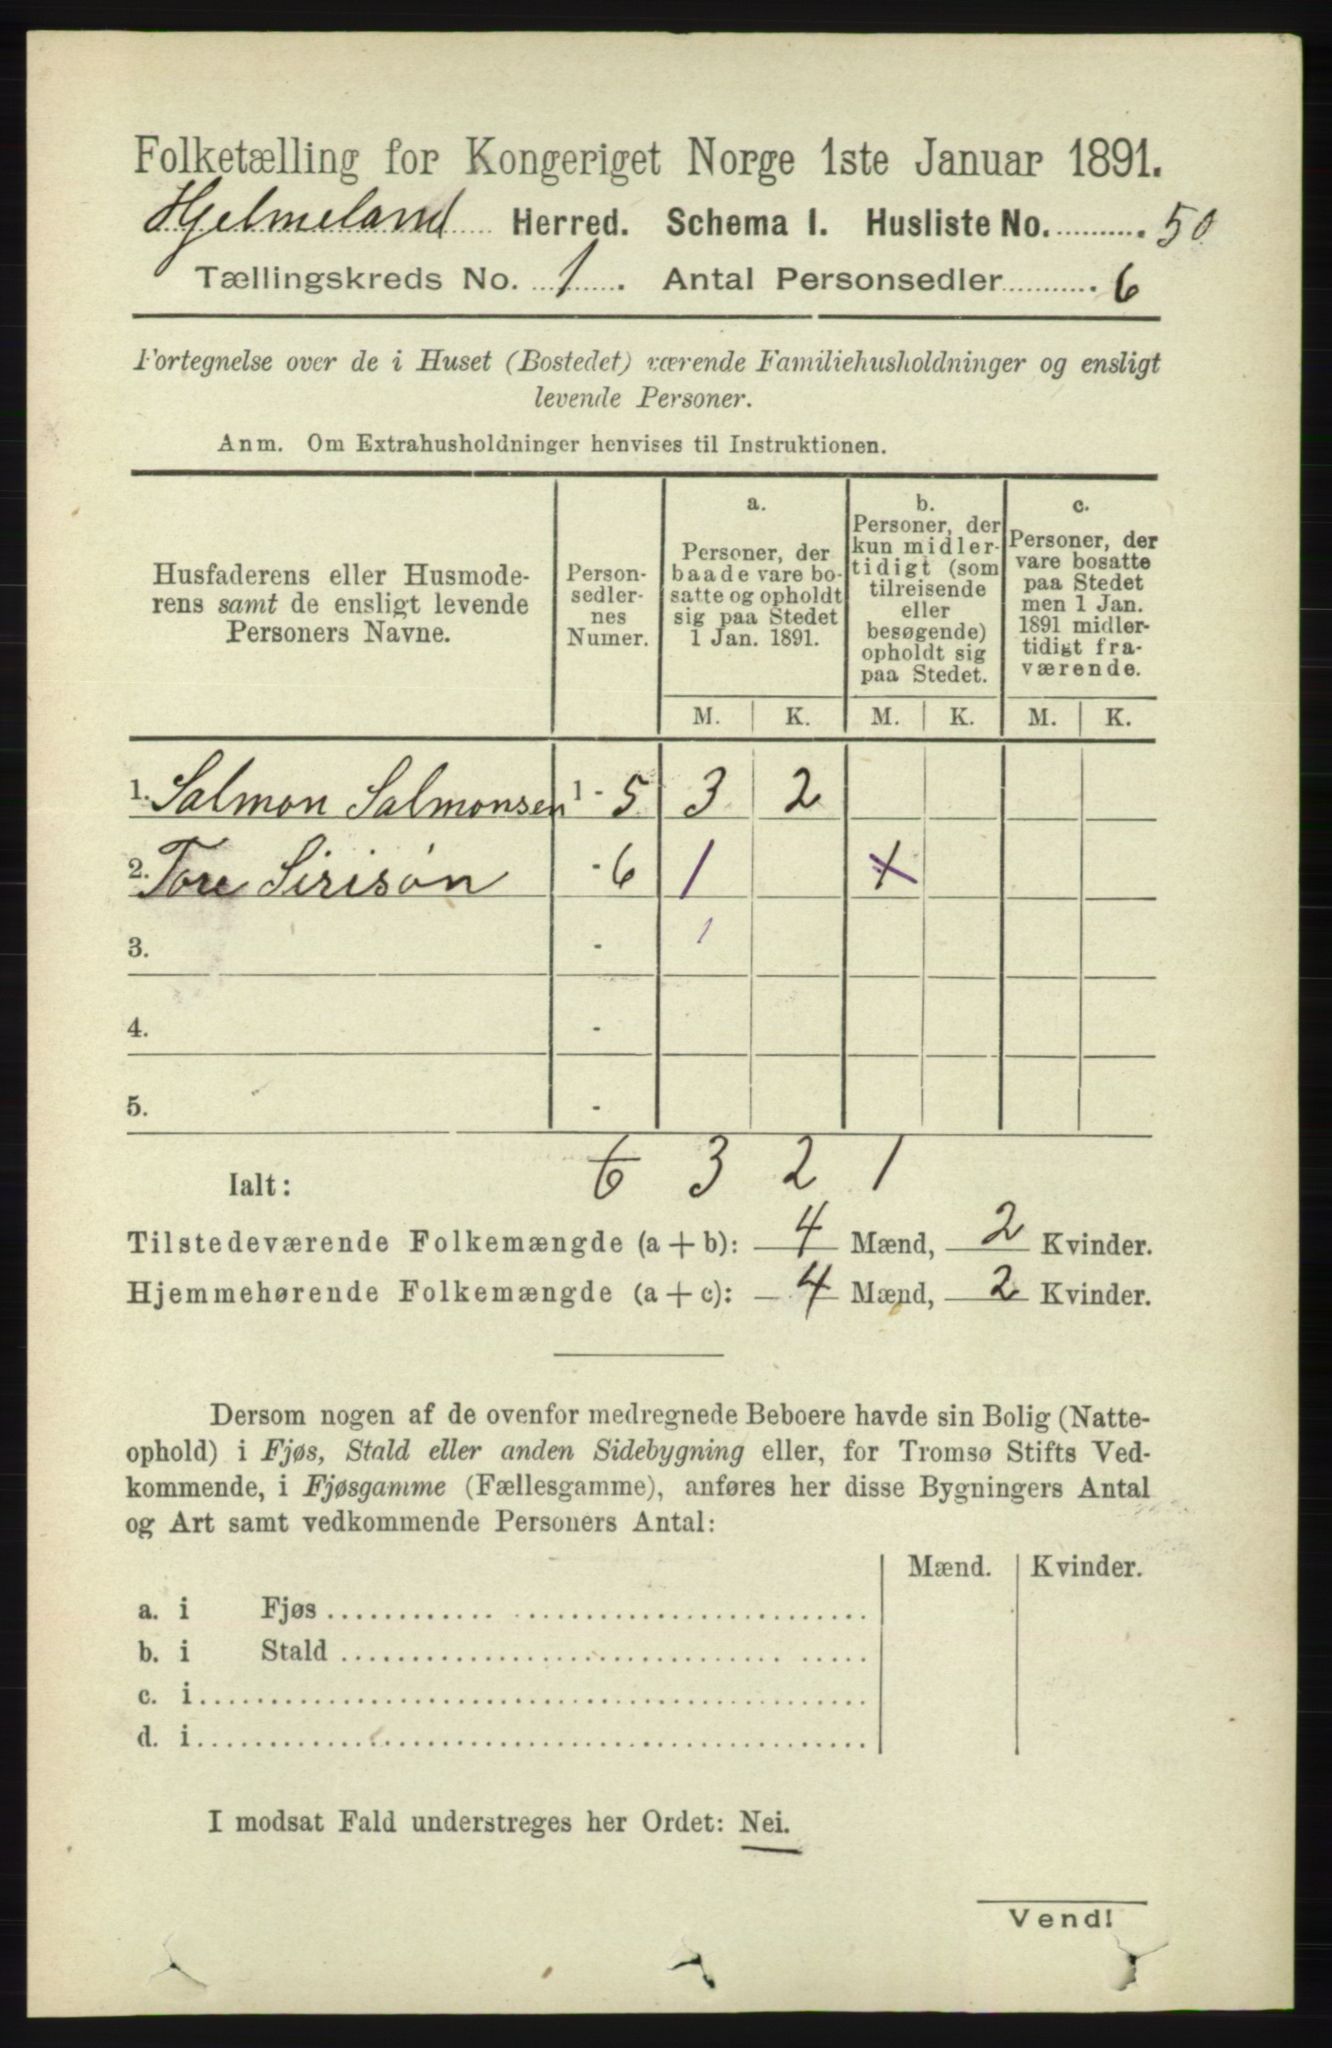 Folketælling for Kongeriget Norge 1ste Januar 1891.
Hjelmeland Herred. Schema I. Husliste No. 50
Tællingskreds No. 1. Antal Personsedler 6
Fortegnelse over de i Huset (Bostedet) værende Familiehusholdninger og ensligt
levende Personer.
Anm. Om Extrahusholdninger henvises til Instruktionen.
Husfaderens eller Husmode-
rens samt de ensligt levende
Personers Navne.
Person-
sedler-
nes
Numer.
a.
Personer, der
baade vare bo-
satte og opholdt
sig paa Stedet
1 Jan. 1891.
b.
Personer, der
kun midler-
tidigt (som
tilreisende
eller
besøgende)
opholdt sig
paa Stedet.
c.
Personer, der
vare bosatte
paa Stedet
men 1 Jan.
1891 midler-
tidigt fra-
værende.
M. K. M. K. M. K.
1. Salmon Salmonsen 1 - 5 3 2
2. Tore Sirisøn - 6 1 1
3. - 1
4. -
5. -
Ialt: 6 3 2 1
Tilstedeværende Folkemængde (a + b): 4 Mænd, 2 Kvinder.
Hjemmehørende Folkemængde (a + c): 4 Mænd, 2 Kvinder.
Dersom nogen af de ovenfor medregnede Beboere havde sin Bolig (Natte-
ophold) i Fjøs, Stald eller anden Sidebygning eller, for Tromsø Stifts Ved-
kommende, i Fjøsgamme (Fællesgamme), anføres her disse Bygningers Antal
og Art samt vedkommende Personers Antal:
Mænd. Kvinder.
a. i Fjøs
b. i Stald
c. i
d. i
I modsat Fald understreges her Ordet: Nei.
Vend!